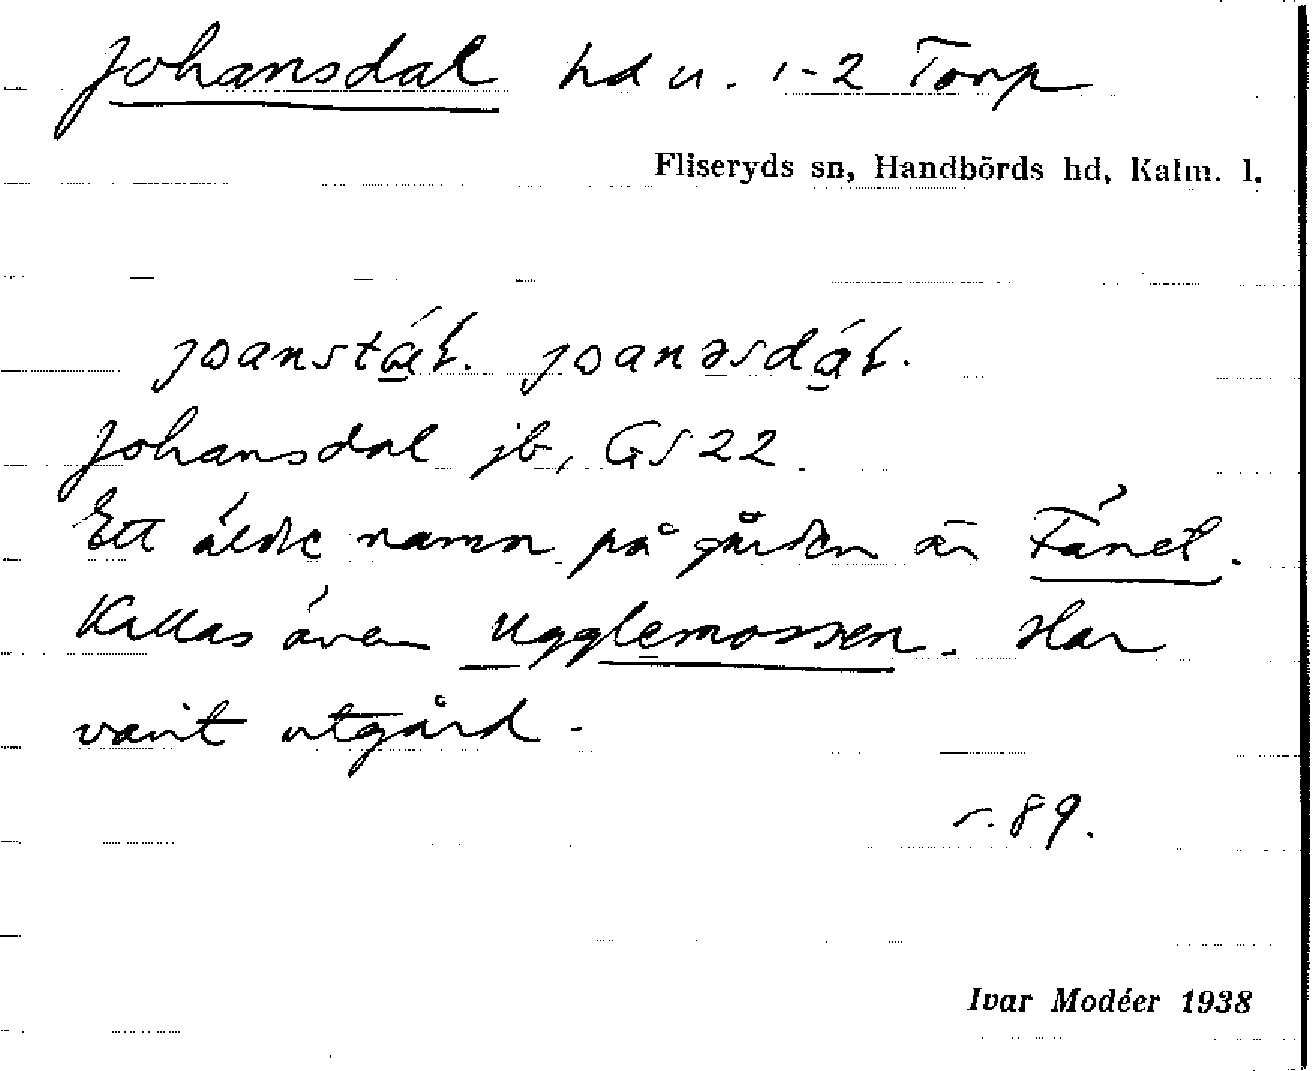 Johansdal hd u. 1-2 Torp
Fliseryds sn, Handbörds hd, Kalm. l.
joanstál. joanəsdál.
Johansdal jb, GS 22.
Ett äldre namn på gården är Tánel.
Kallas även Ugglemossen. Har
varit utgård.
s. 89.
Ivar Modéer 1938